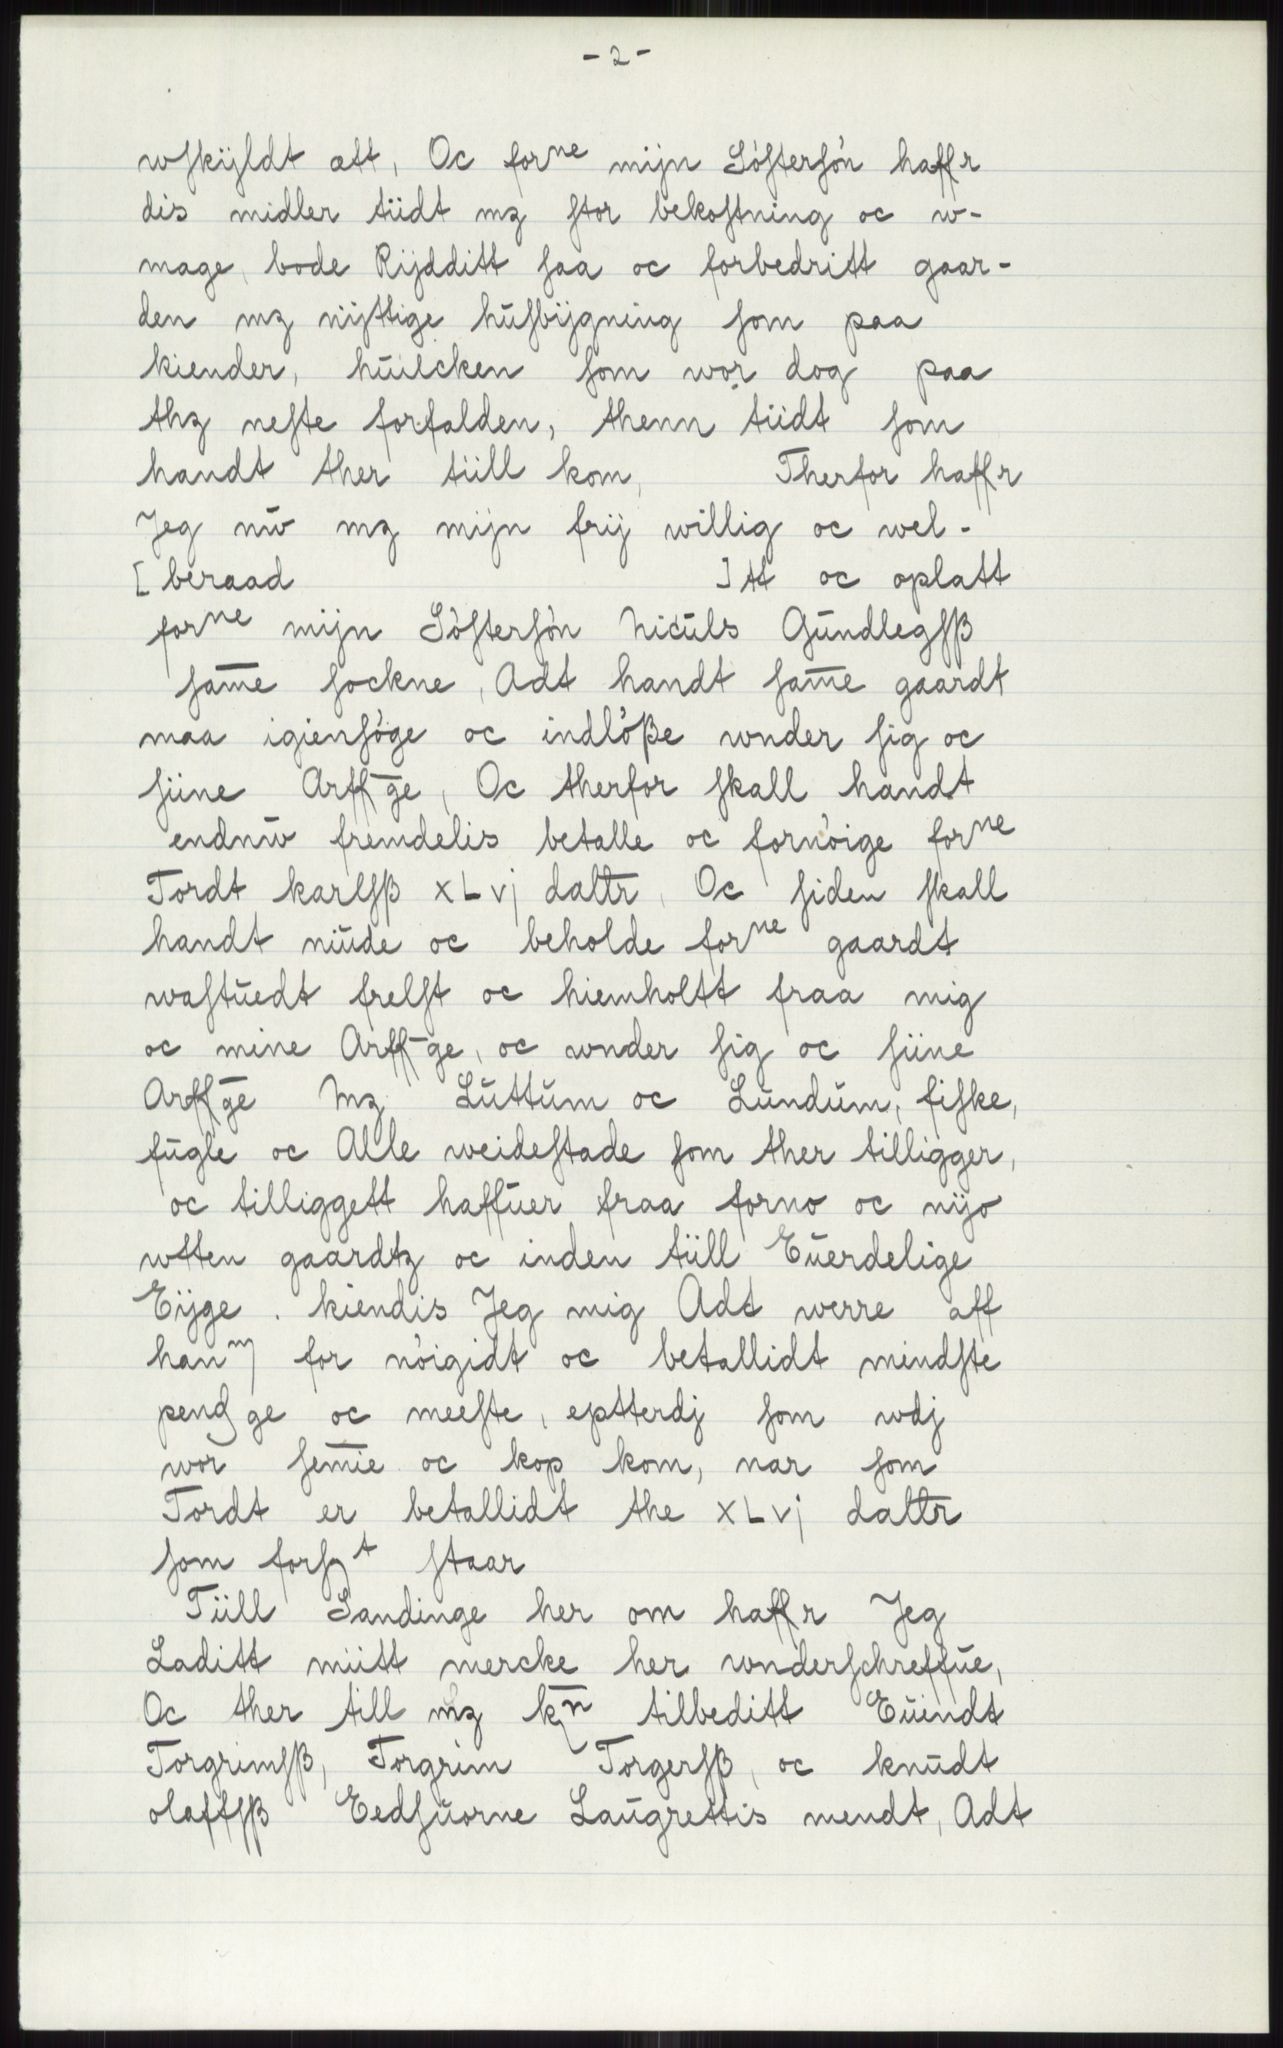 - 2 -
wſkÿldt ætt, Oc forⁿᵉ mijn Söſterſön haffr
dis midler tiidt mꝫ ſtor bekoſtning oc w-
mage, bode Rÿdditt ſaa oc forbedritt gaar-
den mꝫ nÿttige hŭſbÿgning ſom paa
kiender, hŭilcken ſom wor dog paa
thꝫ neſte forfalden, thenn tiidt ſom
handt ther tiill kom, Therfor haffr
Jeg nw mꝫ mijn frij willig oc wel-
[beraad ]tt oc oplatt
forⁿᵉ mijn Söſterſön Nicŭls Gŭndlegſß
ſam̅e ſockne, Adt handt ſam̅e gaardt
maa igienſöge oc indlöße wnder ſig oc
ſiine Arff̅ge, Oc therfor ſkall handt
endnw fremdelis betalle oc fornöige forⁿᵉ
Tordt karlſß xLvj daltr, Oc ſiden ſkall
handt niŭde oc beholde forⁿᵉ gaardt
waſtŭedt frelſt oc hiemholtt fraa mig
oc mine Arff̅ge, oc wnder ſig oc ſiine
Arff̅ge Mꝫ Lŭttŭm oc Lŭndŭm, fiſke,
fŭgle oc Alle weideſtade ſom ther tilligger,
oc tilliggett haffŭer fraa forno oc nijo
wtten gaardtꝫ oc inden tiill Eŭerdelige
Eÿge. kiendis Jeg mig Adt werre aff
hanᵐ for nöigidt oc betallidt mindſte
pendge oc meeſte, eptterdj ſom wdj
wor ſem̅ie oc kop kom, nar ſom
Tordt er betallidt the xLvj daltr
ſom forſᵗ ſtaar
Tiill Sandinge her om haffr Jeg
Laditt miitt mercke her wnderſchreffŭe,
Oc ther till mꝫ kn̅ tilbeditt Eŭindt
Torgrimſß, Torgrim Torgerſß, oc knŭdt
olaffſß Eedſŭorne Laŭgrettis mendt, Adt